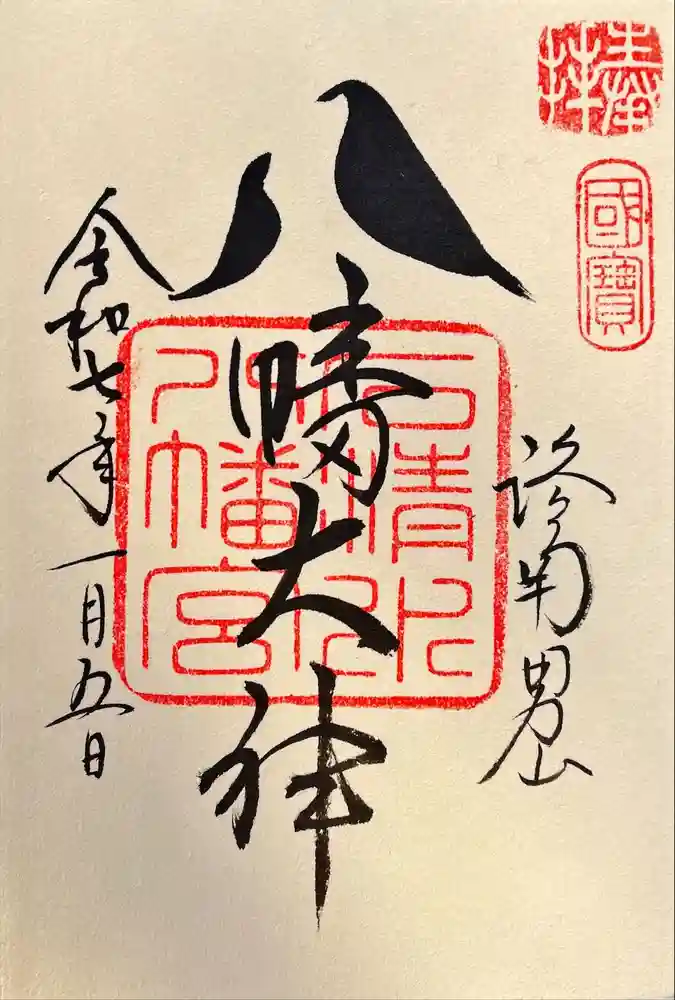 奉拝
國寶
洛南男山
八幡大神
石清水
八幡宮
令和七年一月五日